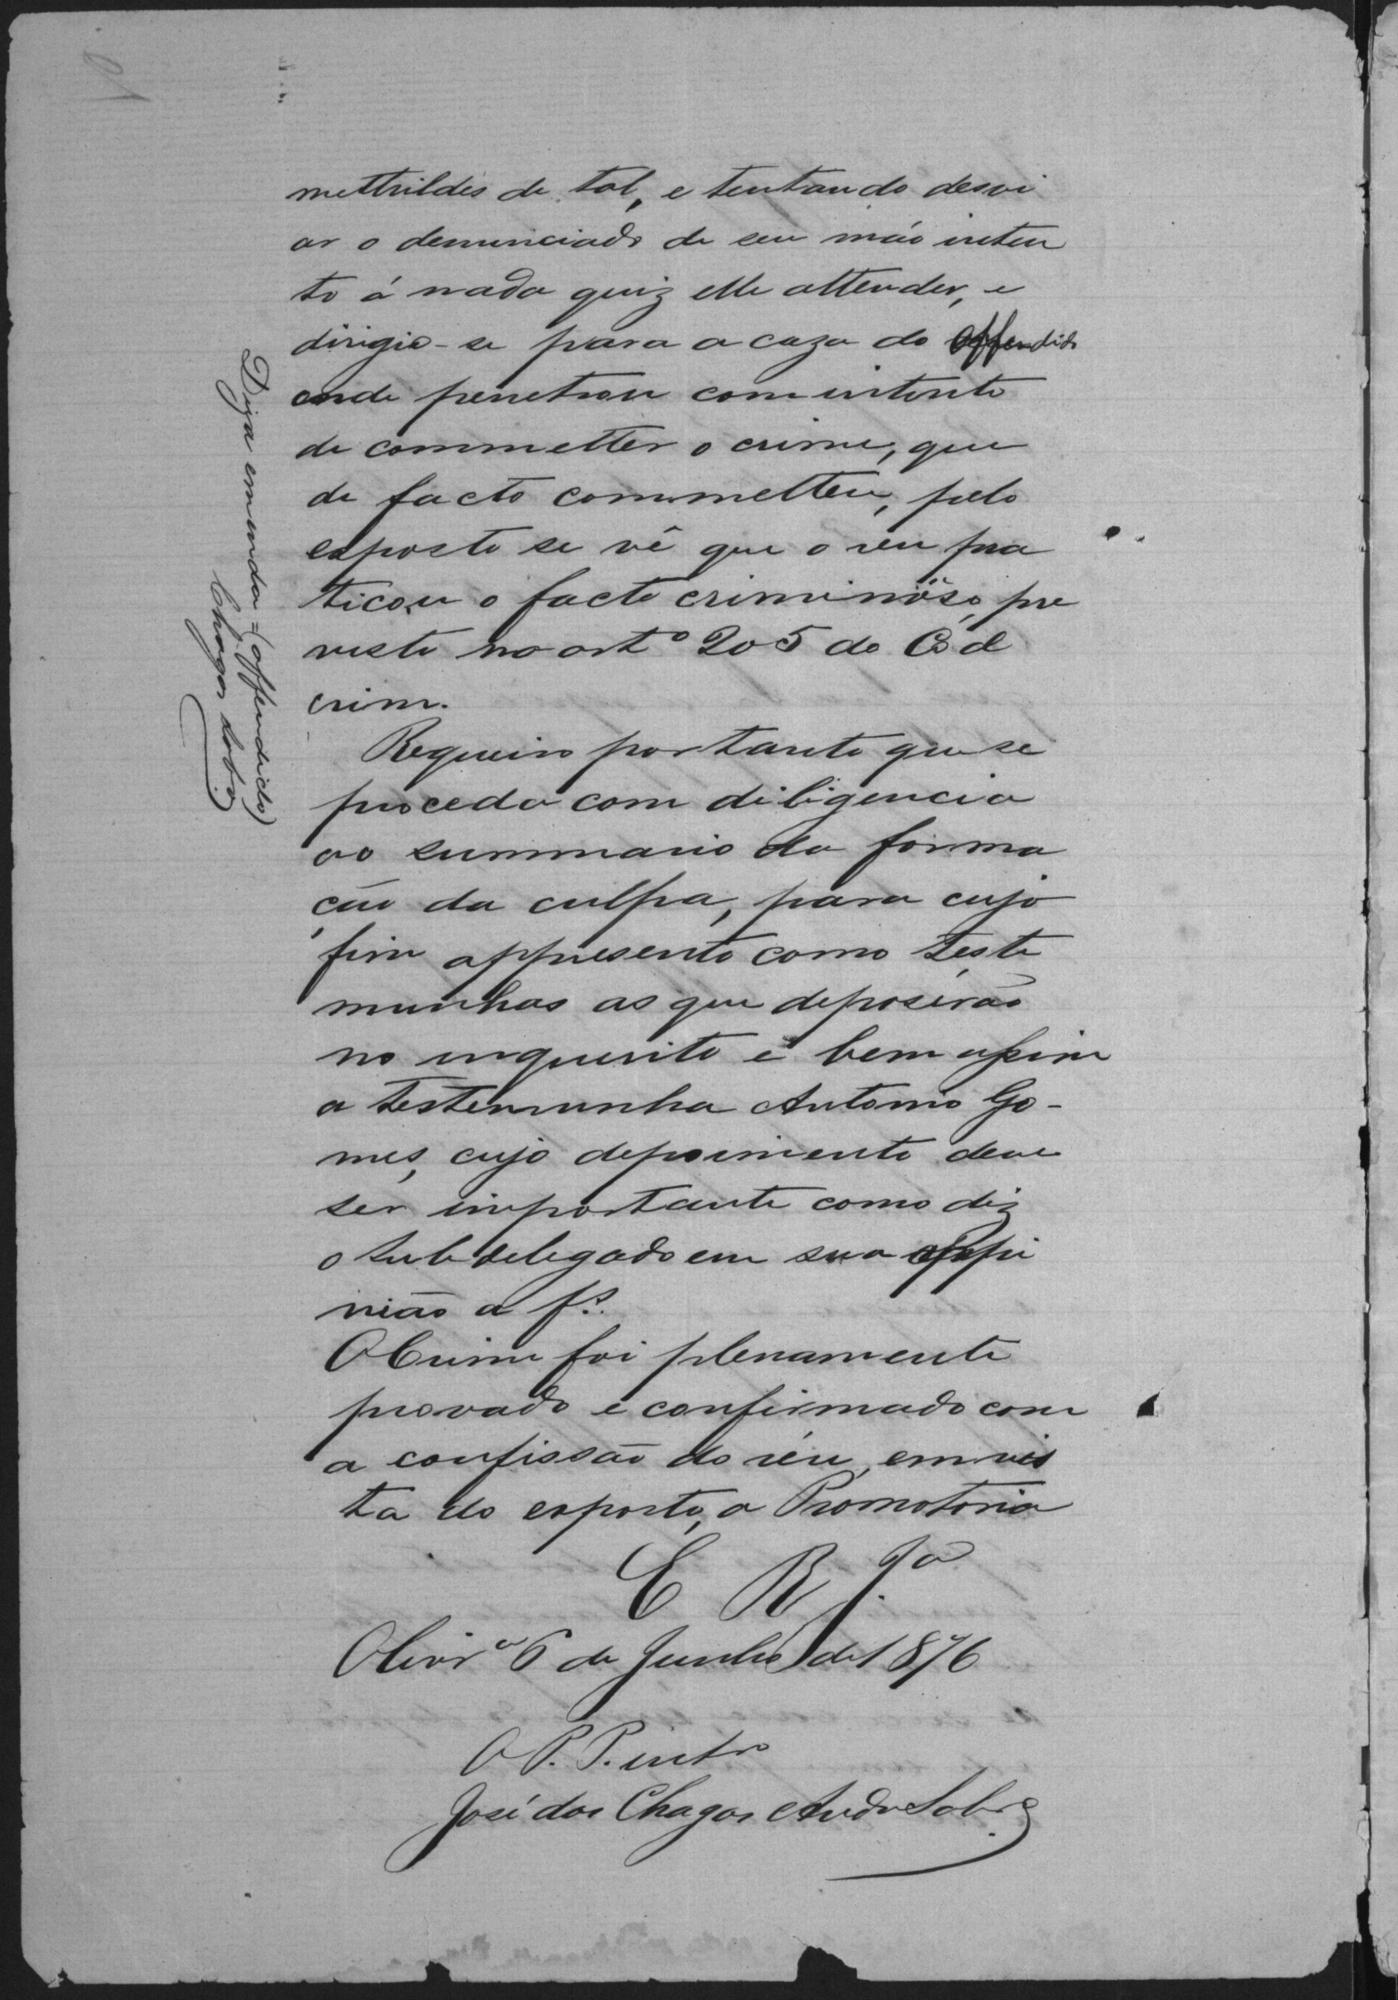 methildes de tal, e tentando desvi
ar o denunciado de seu máo inten
to á nada quiz elle attender, e
dirigio-se para a caza do offendido
onde penetrou com intento
de commetter o crime, que
de facto commetteu, pelo
exposto se vê que o réu pra
ticou o facto criminoso, pre
visto no artº 205 do Cod
crim.
Requeiro portanto que se
proceda com diligencia
ao summario da forma
ção da culpa, para cujo
fim appresento como teste
munhas as que deposerão
no inquerito e bem assim
a testemunha Antonio Go-
mes, cujo depoimento deve
ser importante como diz
o subdelegado em sua oppi
nião a fs.
O Crime foi plenamente
provado e confirmado com
a confissão do réu, em vis
ta do exposto, a Promotoria
E R Jª
Olivrª 6 de Junho de 1876
O P. P. intº
José das Chagas Andr Sobrº
Diga emenda = (offendido)
Chagas Sobrº